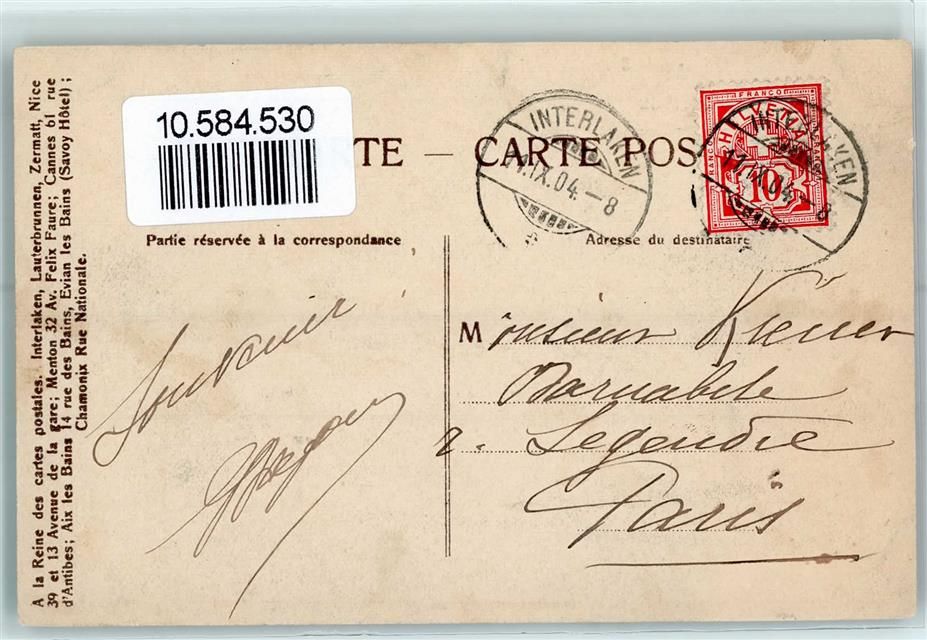 10.584.530
TE — CARTE POS
INTERLAKEN
11.IX.04.–8
FRANCO
FRANCO
FRANCO
HELVETIA
10
INTERLAKEN
11.IX.04.–8
Partie réservée à la correspondance
Adresse du destinataire
A la Reine des cartes postales. Interlaken, Lauterbrunnen, Zermatt, Nice
39 et 13 Avenue de la gare; Menton 32 Av. Felix Faure; Cannes 61 rue
d'Antibes; Aix les Bains 14 rue des Bains, Evian les Bains (Savoy Hôtel);
Chamonix Rue Nationale.
Souvenir
Monsieur
Barnabite
r. Legendre
Paris